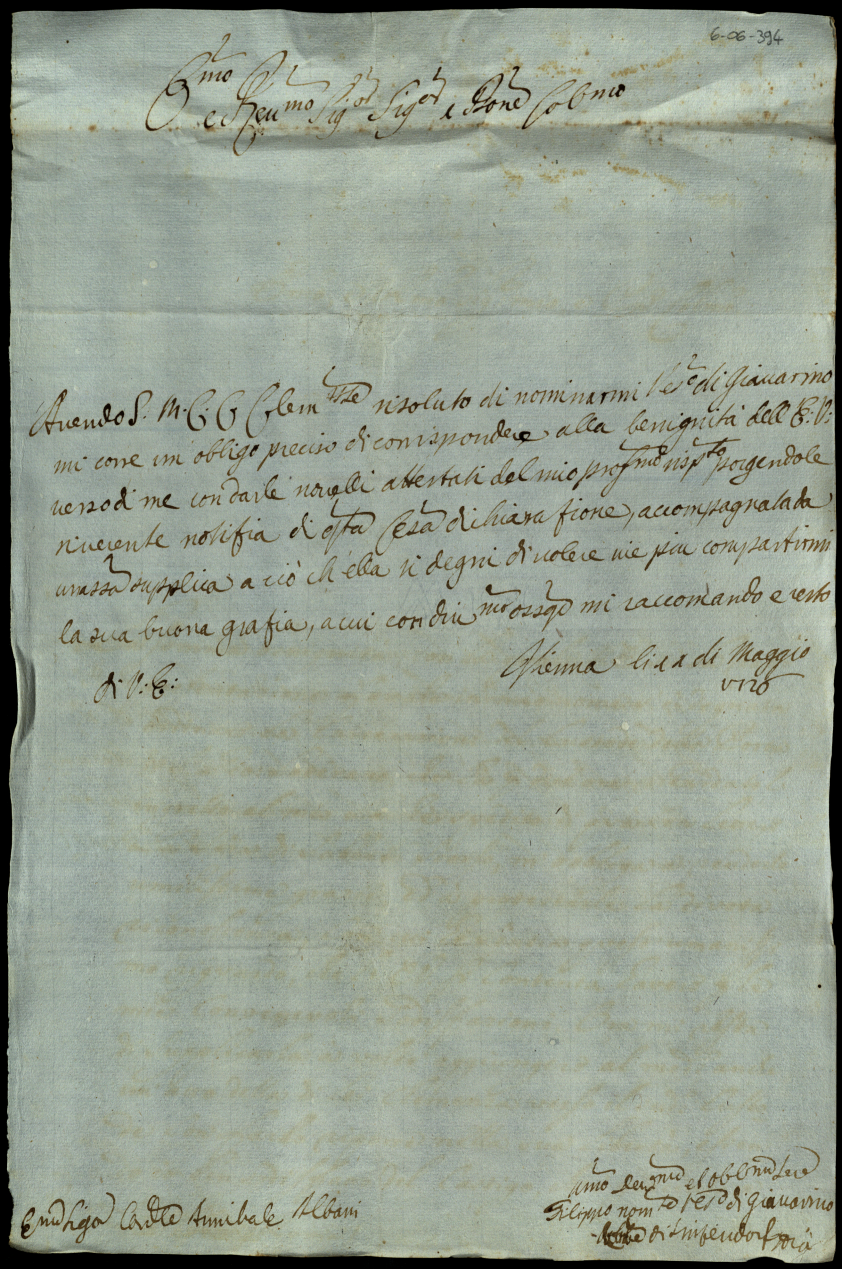 6-06-394
Emo
e Reumo Sigor Sigor e Pone Colmo
Auendo S. M. C. C. Clemte risoluto di nominarmi Veo di Giauarino
mi corre un obligo preciso di corrispondere alla benignità dell E: V:
uerso di me con darle nouelli attestati del mio profmo rispto porgendole
riuerente notifia di qta Cesa dichiarafione, accompagnata da
una supplica a ciò ch'ella si degni di uolere uie piu compartirmi
la sua buona grafia, a cui con diumo ossqo mi raccomando e resto
di V: E:
Vienna li di Maggio
Emo Sigr Cardle Annibale Albani
umo deumo et obblmo Sere
Filippo nomto Veo di Giauarino
di Sinfendorf